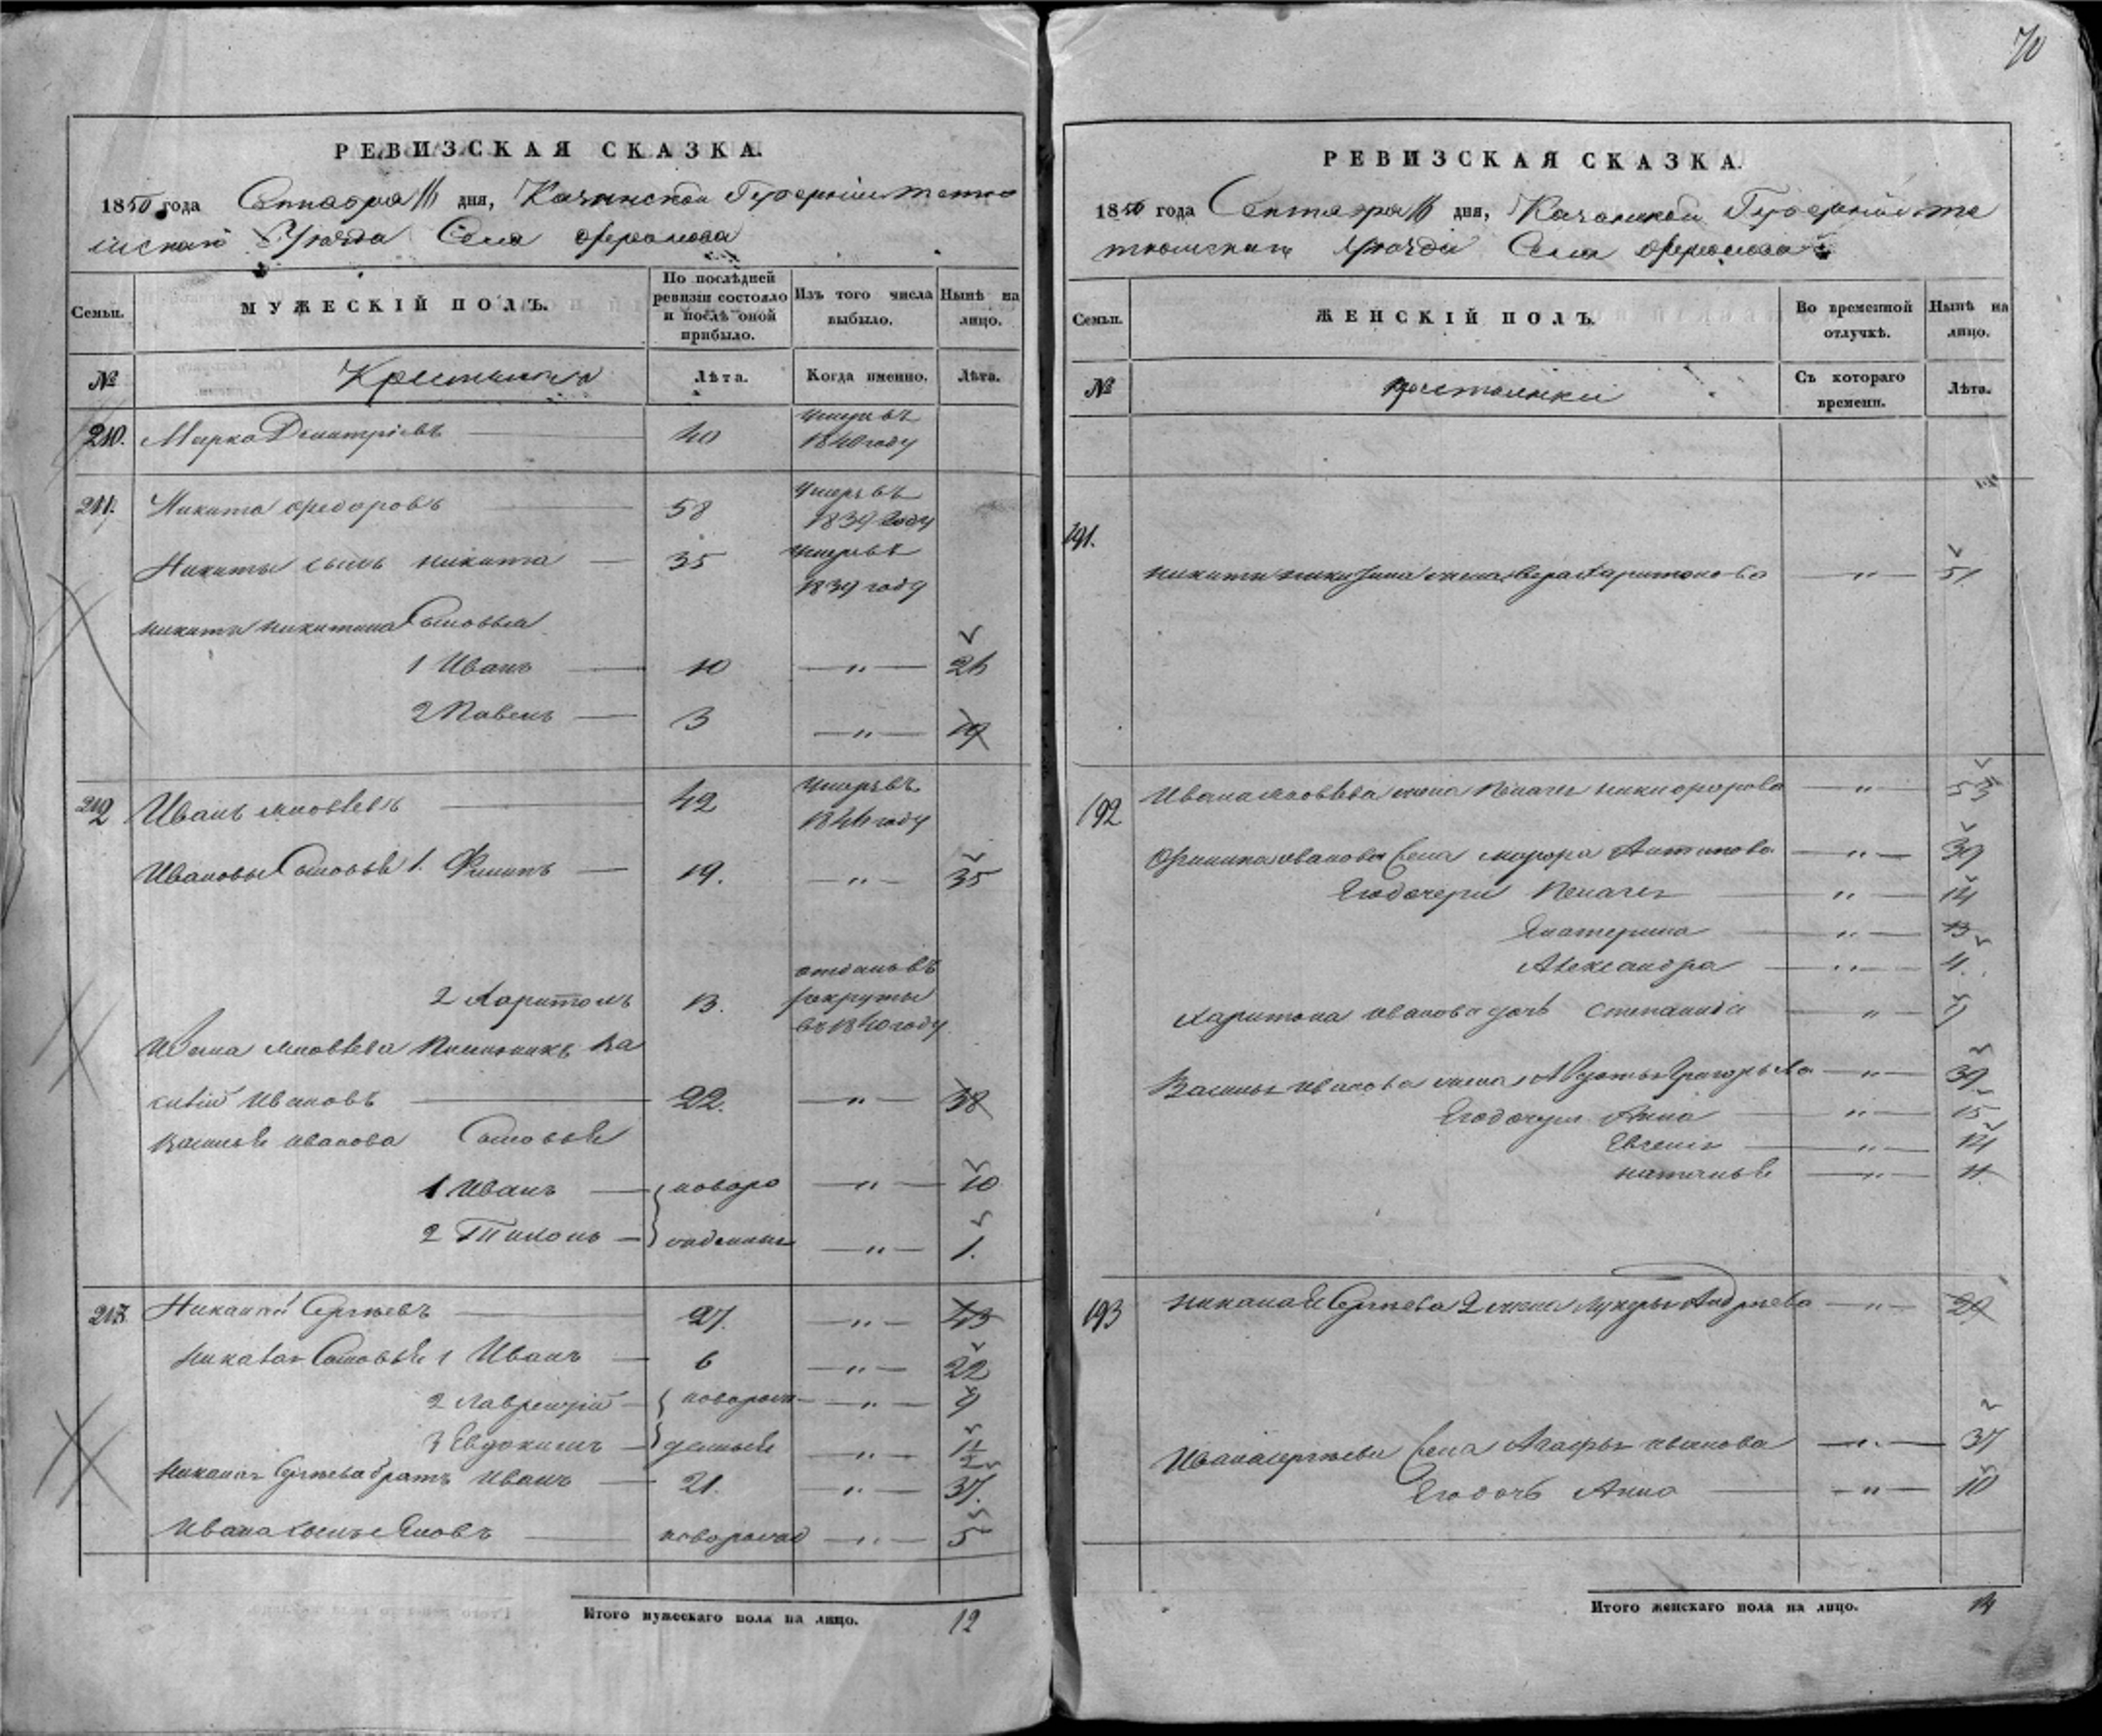 70
РЕВИЗСКАЯ СКАЗКА.
1850 года Сентября 16 дня, Казанской Губерніи Тетю
шскаго Уѣзда Села
Семьи.
МУЖЕСКІЙ ПОЛЪ.
По послѣдней ревизіи состояло и послѣ оной прибыло.
Изъ того числа выбыло.
Нынѣ на лицо.
№
Крестьяне
Лѣта.
Когда именно.
Лѣта.
210. Марко Дмитріевъ 40 умеръ въ
1840 году
211. Никита Федоровъ 58 Умеръ въ
1839 году
Никиты сынъ Никита 35 умеръ въ
1839 году
Никиты Никитина Сыновья
1 Иванъ 10 — " — 26
2 Павелъ 3 — " — 19
212 Иванъ Яковлевъ 42 умеръ въ
1844 году
Ивановы Сыновья 1. Филипъ 19. — " — 35
2 Харитонъ 13. отданъ въ
рекруты
въ 1840 году
Ивана Яковлева Ва
силій Ивановъ 22. — " — 38
Василья Иванова Сыновья
1 Иванъ — новоро — " — 10
2 Тихонъ — жденные — " — 1.
213. Николай Сергѣевъ 27. — " — 43
Николая Сыновья 1 Иванъ 6 — " — 22
2 Лаврентій — новорож — " — 9
3 Евдокимъ — денные — " — 1 1/2
Николая Сергѣева братъ Иванъ 21. — " — 37.
Ивана сынъ новорожд — " — 5
Итого мужескаго пола на лицо. 12
РЕВИЗСКАЯ СКАЗКА.
1850 года Сентября 16 дня, Казанской Губерніи Те
тюшскаго Уѣзда Села
Семьи.
ЖЕНСКІЙ ПОЛЪ.
Во временной отлучкѣ.
Нынѣ на лицо.
№
Крестьянки
Съ котораго времени.
Лѣта.
191.
Никиты Никитина жена Вера Харитонова — " — 51
192 Ивана Яковлева жена Пелагея Никифорова — " — 53
Филипа Иванова жена Марфа Антипова — " — 39
Его дочери Пелагея — " — 14
Екатерина — " — 13
Александра — " — 4.
Харитона Иванова дочь Степанида — " — 9
Василья Иванова жена Авдотья Григорьева — " — 39
Его дочери Анна — " — 15
Евгенія — " — 14
Наталья — " — 11
193 Николая Сергѣева 2 жена Лукерья Андреева — " — 29
Ивана Сергѣева жена Агафья Иванова — " — 37
Его дочь Анна — " — 10
Итого женскаго пола на лицо. 14